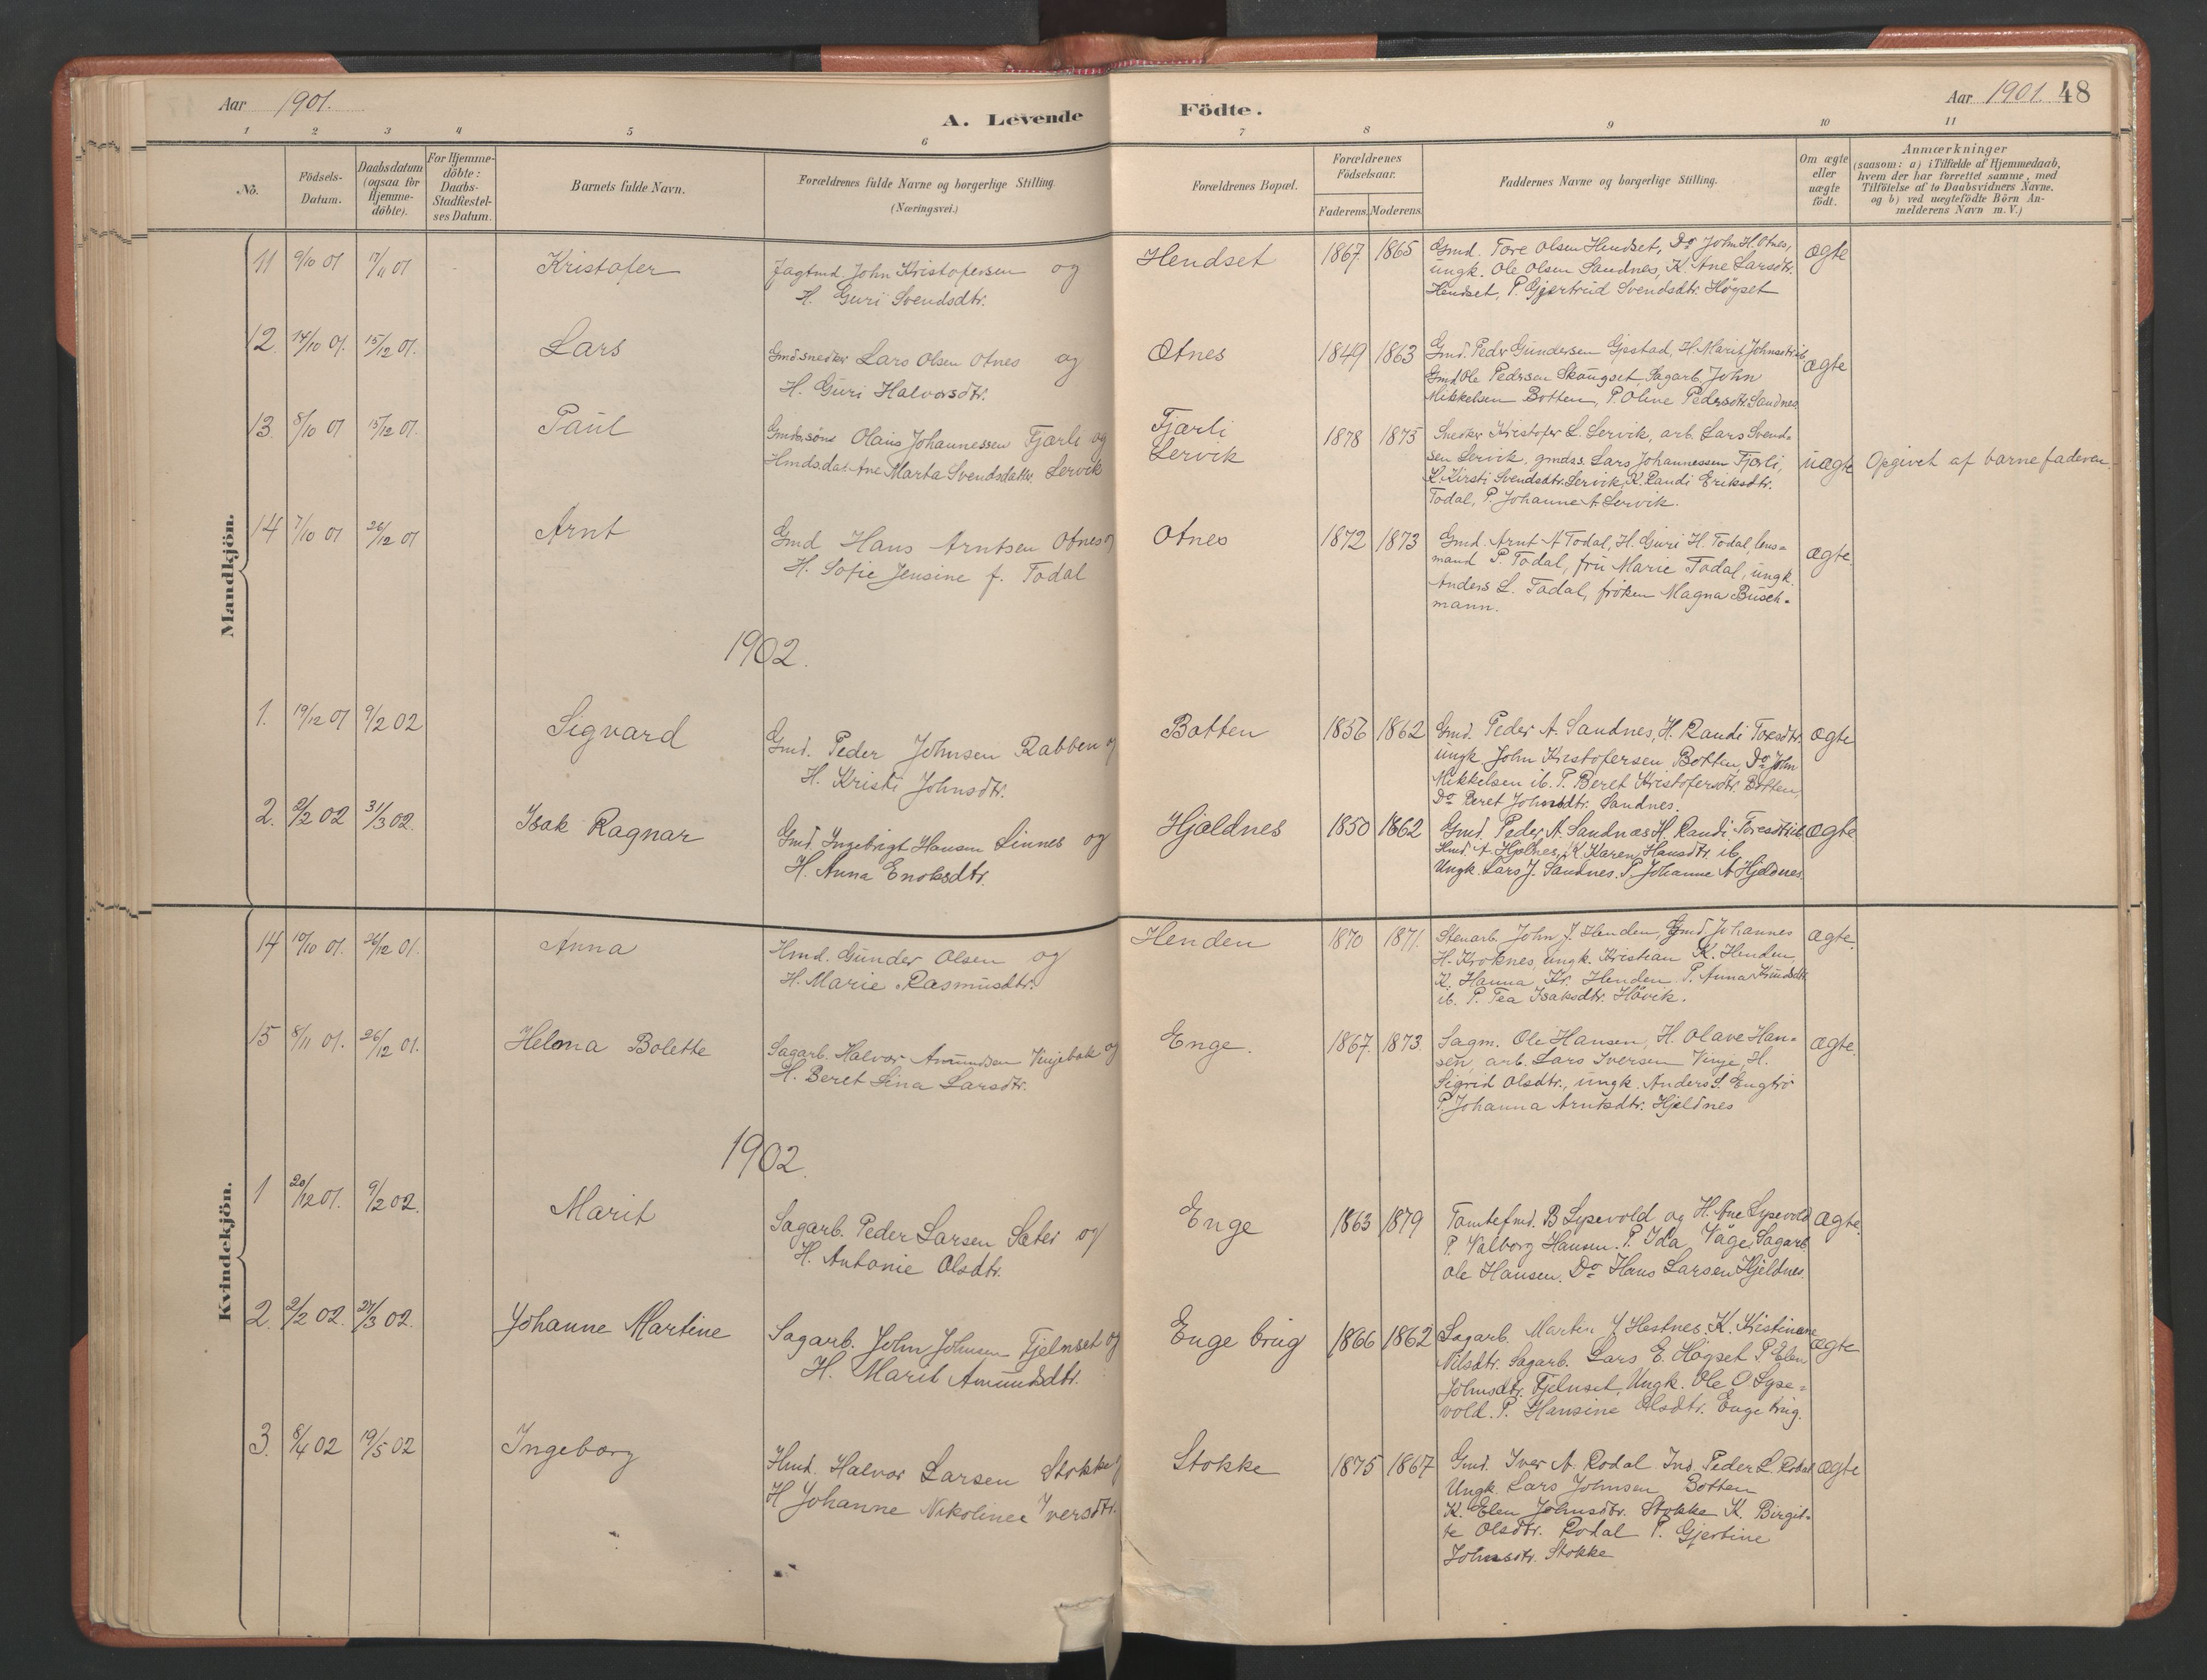 Aar 1901.
A. Levende Födte.
Aar 1901. 48
1 2 3 4 5 6 7 8 9 10 11
No. Födsels-Datum. Daabsdatum (ogsaa for Hjemmedöbte). For Hjemmedöbte: Daabs-Stadfæstelses Datum. Barnets fulde Navn. Forældrenes fulde Navne og borgerlige Stilling (Næringsvei.) Forældrenes Bopæl. Forældrenes Födselsaar. Faderens. Moderens. Faddernes Navne og borgerlige Stilling. Om ægte eller uægte födt. Anmærkninger (saasom: a) i Tilfælde af Hjemmedaab, hvem der har forrettet samme, med Tilföielse af to Daabsvidners Navne. og b) ved uægtefödte Börn Anmelderens Navn m. V.)
Mandkjön.
11 9/10 01 17/11 01 Kristofer Jagtmd. John Kristofersen og Hendset 1867 1865 Gmd. Tore Olsen Hendset, Do John H. Otnes, ægte
H. Guri Svendsdtr. ungk. Ole Olsen Sandnes, K. Ane Larsdtr.
Hendset, P. Gjertrud Svendsdtr. Högset
12. 14/10 01. 15/12 01. Lars Gmd. snedker Lars Olsen Otnes og Otnes 1849 1863 Gmd. Peder Gundersen Gjestad, H. Marit Johnsdtr. ib. ægte
H. Guri Halvorsdtr. Gmd Ole Pedersen Skougset Sagarb. John
Mikkelsen Botten, P. Oline Pedersdtr. Sandnes.
13. 8/10 01 15/12 01. Paul Gmdssöns Olaus Johannessen Fjærli og Fjærli 1878 1875 Snedker Kristofer L. Lervik, arb. Lars Svend-
Hmdsdat. Ane Marta Svendsdatter Lervik Lervik sen Lervik, gmdss. Lars Johannessen Fjærli, uægte Opgivet af barnefaderen.
K. Kirsti Svendsdtr. Lervik, K. Randi Eriksdtr.
Todal, P. Johanne A Lervik.
14 7/10 01 26/12 01 Arnt Gmd Hans Arntsen Otnes og Otnes 1872 1873 Gmd. Arnt A Todal, H. Guri H. Todal, lens-
H. Sofie Jensine f. Todal mand P. Todal, fru Marie Todal, ungk. ægte.
Anders L. Todal, fröken Magna Busch-
mann.
1902.
1. 19/12 01 9/2 02 Sigvard Gmd. Peder Johnsen Rabben og Botten 1856 1862 Gmd. Peder A. Sandnes, H. Randi Toresdtr. ægte
H. Kristi Johnsdtr. ungk John Kristofersen Botten, Do John
Mikkelsen ib. P. Beret Kristofersdtr. Botten,
Do Beret Johnsdtr. Sandnes.
2. 2/2 02 31/3 02. Isak Ragnar Gmd. Ingebrigt Hansen Linnes og Hjældnes 1850 1862 Gmd. Peder A. Sandnæs H. Randi Toresdtr ib ægte
H. Anna Enoksdtr. Hmd. A. Hjelnes, K. Karen Hansdtr. ib.
Ungk. Lars J. Sandnes. P. Johanne A Hjeldnes.
Kvindekjön.
14 10/10 01. 26/12 01. Anna Hmd. Gunder Olsen og Henden 1870 1871. Stenarb. John J. Henden, Gmd Johannes ægte.
H. Marie Rasmusdtr. H. Kroknes, ungk. Kristian K. Henden,
K. Hanna Kr. Henden P. Anna Knudsdtr.
ib. P. Tea Isaksdtr. Håvik.
15 8/11 01. 26/12 01. Helma Bolette Sagarb. Halvor Amundsen Vinjebak og Enge. 1867. 1873. Sagm. Ole Hansen, H. Olave Han- ægte.
H. Beret Lina Larsdtr. sen, arb. Lars Iversen Vinge, H.
Sigrid Olsdtr., ungk. Anders S. Engbrö
P. Johanna Arntsdtr. Hjeldnes
1902.
1 20/12 01. 9/2 02. Marit Sagarb. Peder Larsen Sæter og Enge 1863 1879 Tomtefmd. B Lysevold og H. Ane Lysevold ægte.
H. Antonie Olsdtr. P. Valborg Hansen. P. Ida Våge, Sagarb
Ole Hansen. Do Hans Larsen Hjeldnes.
2. 2/2 02. 27/3 02. Johanne Martine Sagarb. John Johnsen Fjelnset og Enge brug 1866 1862 Sagarb. Martin J Hestnes. K. Kristine ægte
H. Marit Amundsdtr. Nilsdtr. Sagarb. Lars E. Högset P. Elen
Johnsdtr. Fjelnset, Ungk. Ole O Lyse-
vold. P. Hansine Olsdtr. Enge brug.
3. 8/4 02 19/5 02 Ingeborg Hmd. Halvor Larsen Stokke og Stokke 1875 1867 Gmd. Iver A. Rodal Ind. Peder L. Rodal ægte
H Johanne Nikolinee Iversdtr. Ungk. Lars Johnsen Botten
K. Elen Johnsdtr. Stokke K. Birgit-
te Olsdtr. Rodal P. Gjertine
Johnsdtr. Stokke